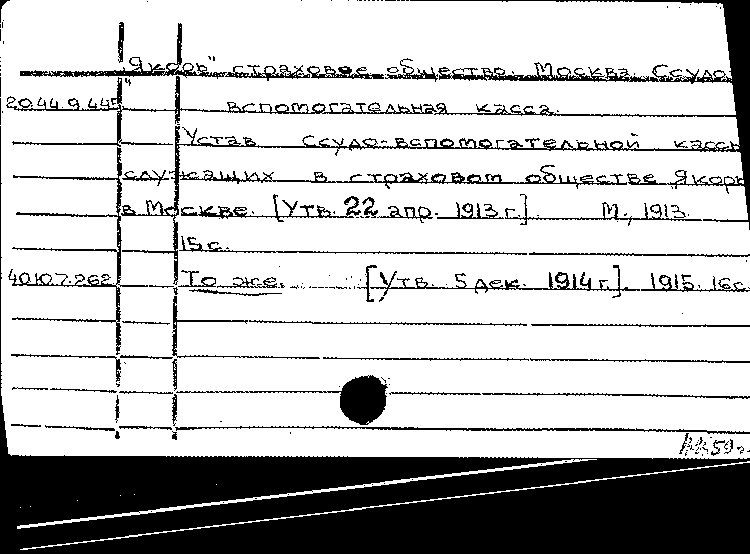 "Якорь" страховое общество. Москва. Ссудо-
20.44.9.445 вспомогательная касса.
Устав ссудо-вспомогательной кассы
служащих в страховом обществе Якорь
в Москве. [Утв. 22 апр. 1913 г.]. М., 1913.
15 с.
40.10.7.262 То же. [Утв. 5 дек. 1914 г.]. 1915. 16 с.